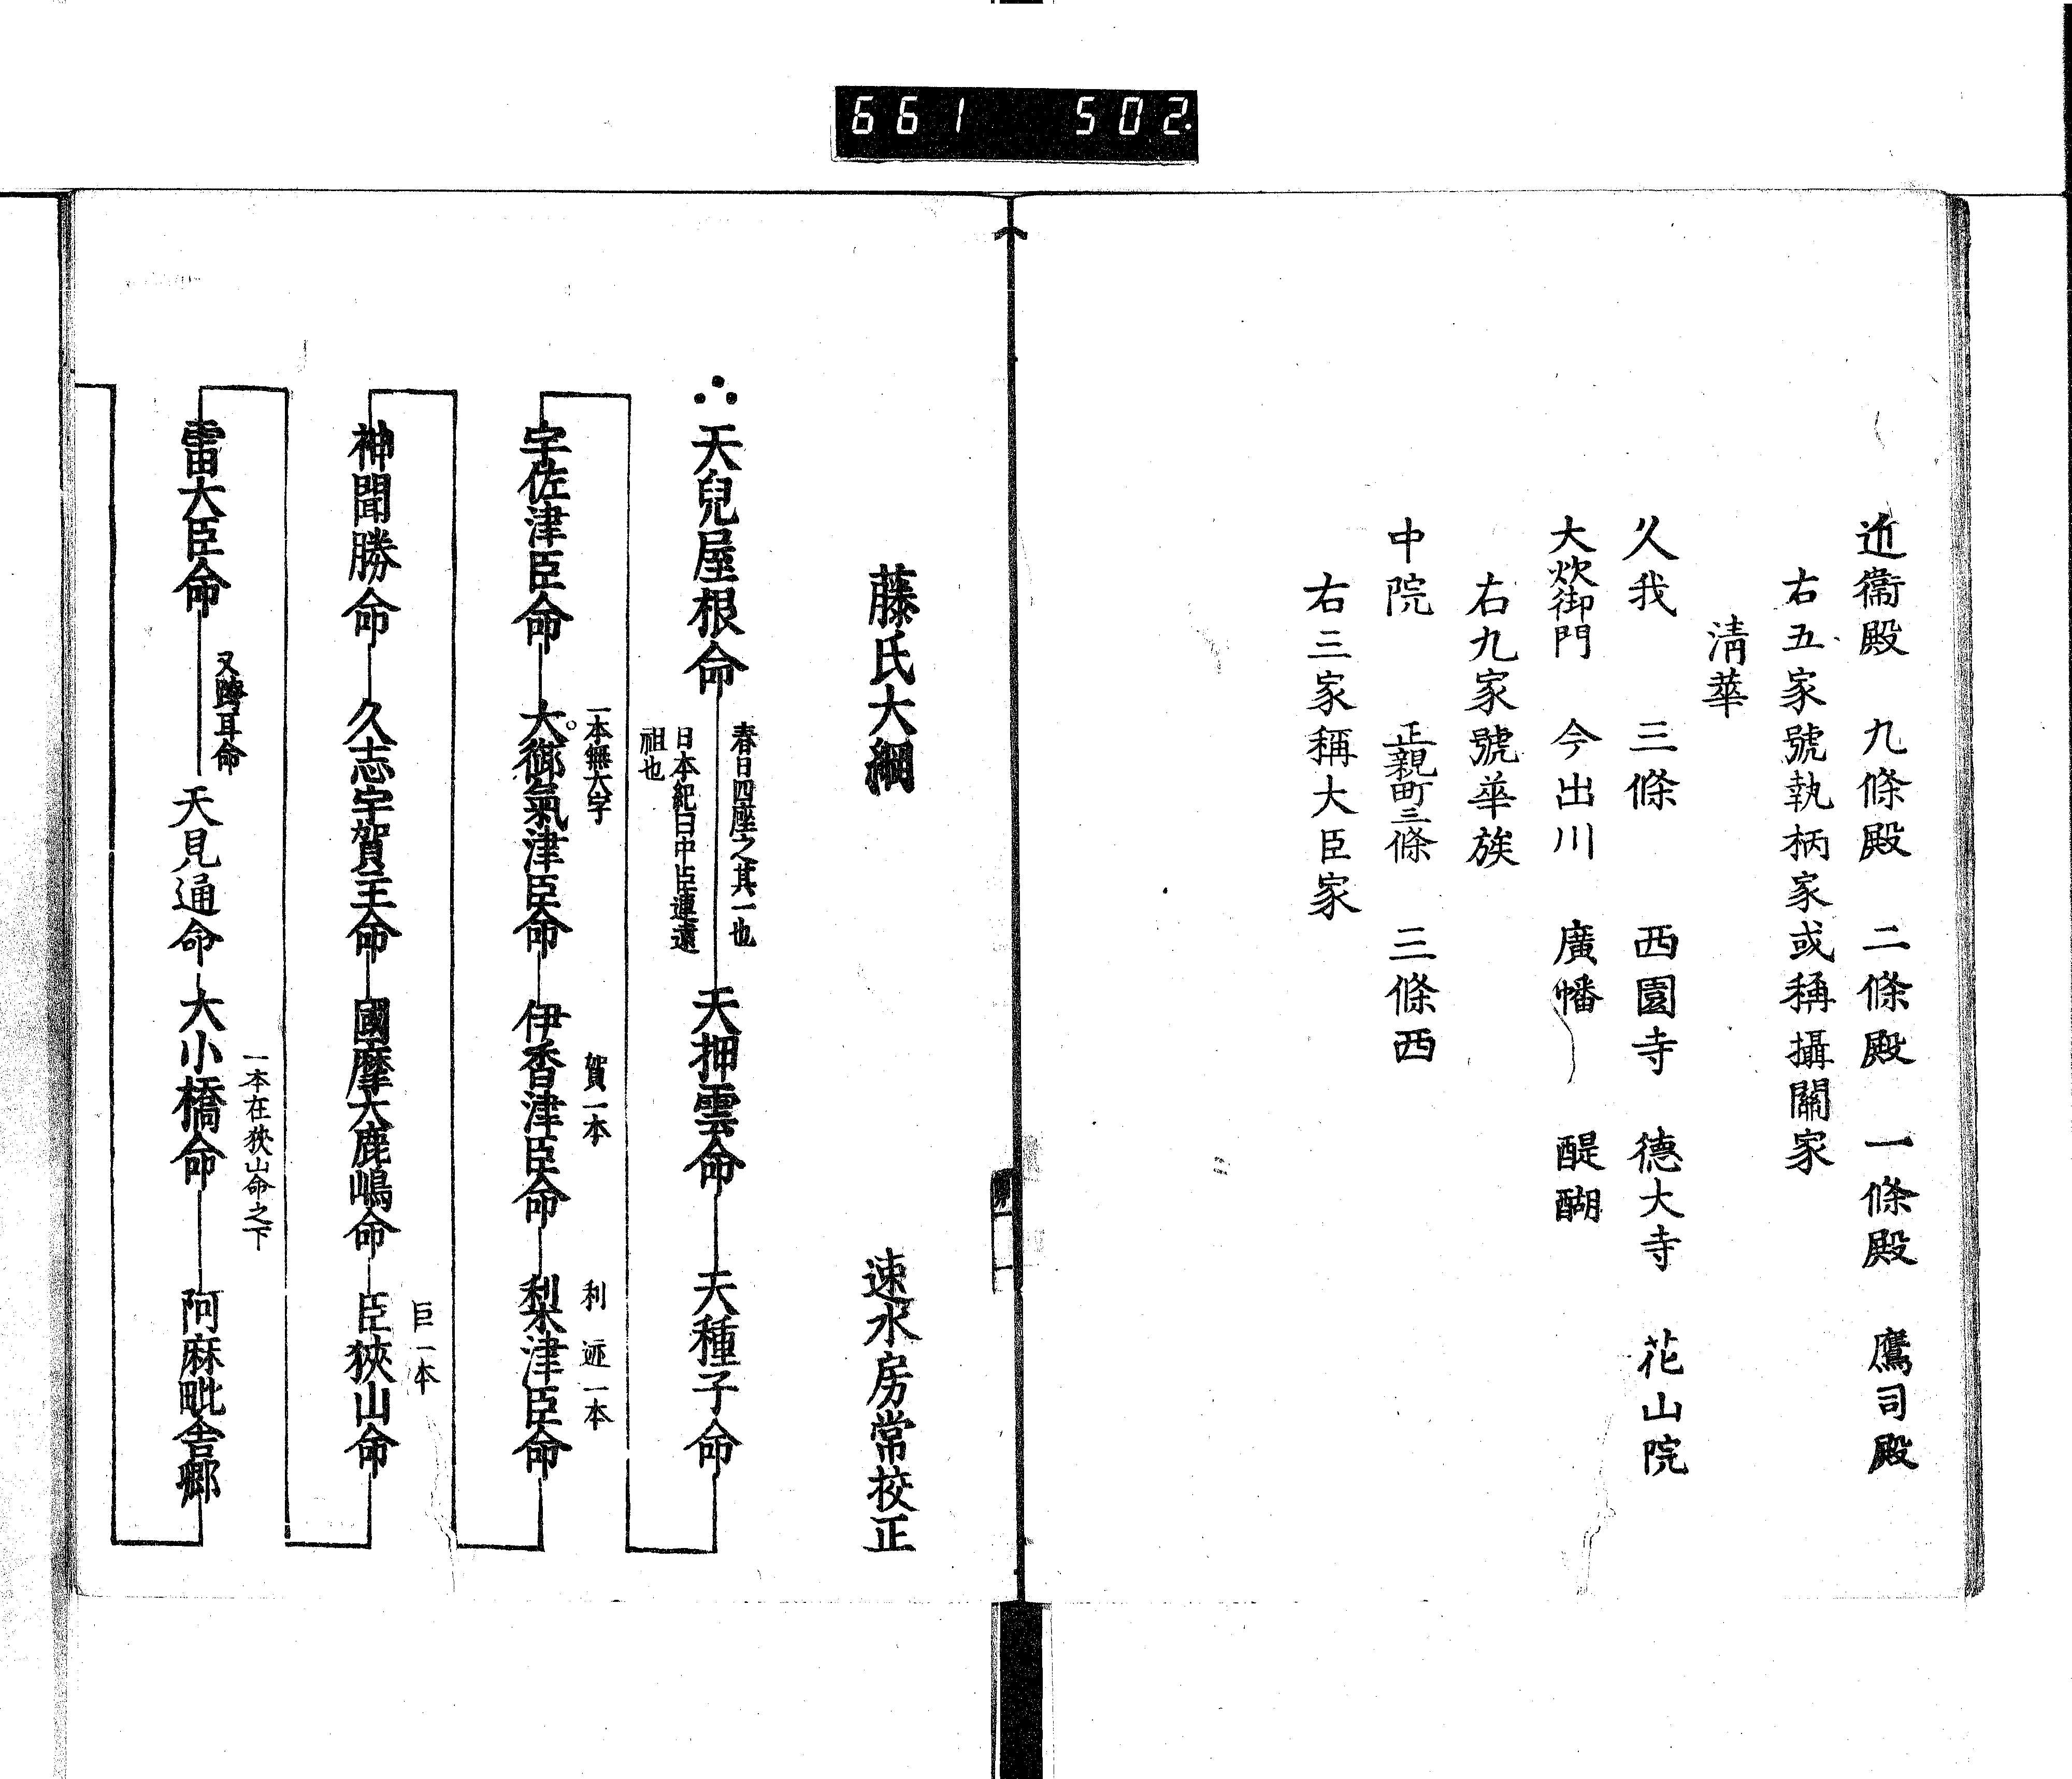 661 502
近衞殿 九條殿 二條殿 一條殿 鷹司殿
右五家號執柄家或稱攝關家
淸華
久我 三條 西園寺 德大寺 花山院
大炊御門 今出川 廣幡 醍醐
右九家號華族
中院 正親町三條 三條西
右三家稱大臣家
藤氏大綱 速水房常校正
天兒屋根命 天押雲命 天種子命
春日四座之其一也
日本紀曰中臣連遠
祖也
一本無大字 賀一本 利 一本
宇佐津臣命 大御氣津臣命 伊香津臣命 梨津臣命
巨一本
神聞勝命 久志宇賀主命 國摩大鹿嶋命 臣狹山命
一本在狹山命之下
又跨耳命
雷大臣命 天見通命 大小橋命 阿麻毗舎卿